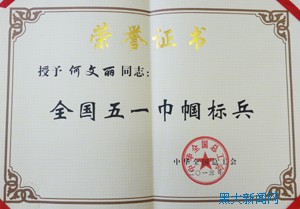 荣誉证书
授予 何文丽 同志：
全国五一巾帼标兵
中华全国总工会
黑大新闻网